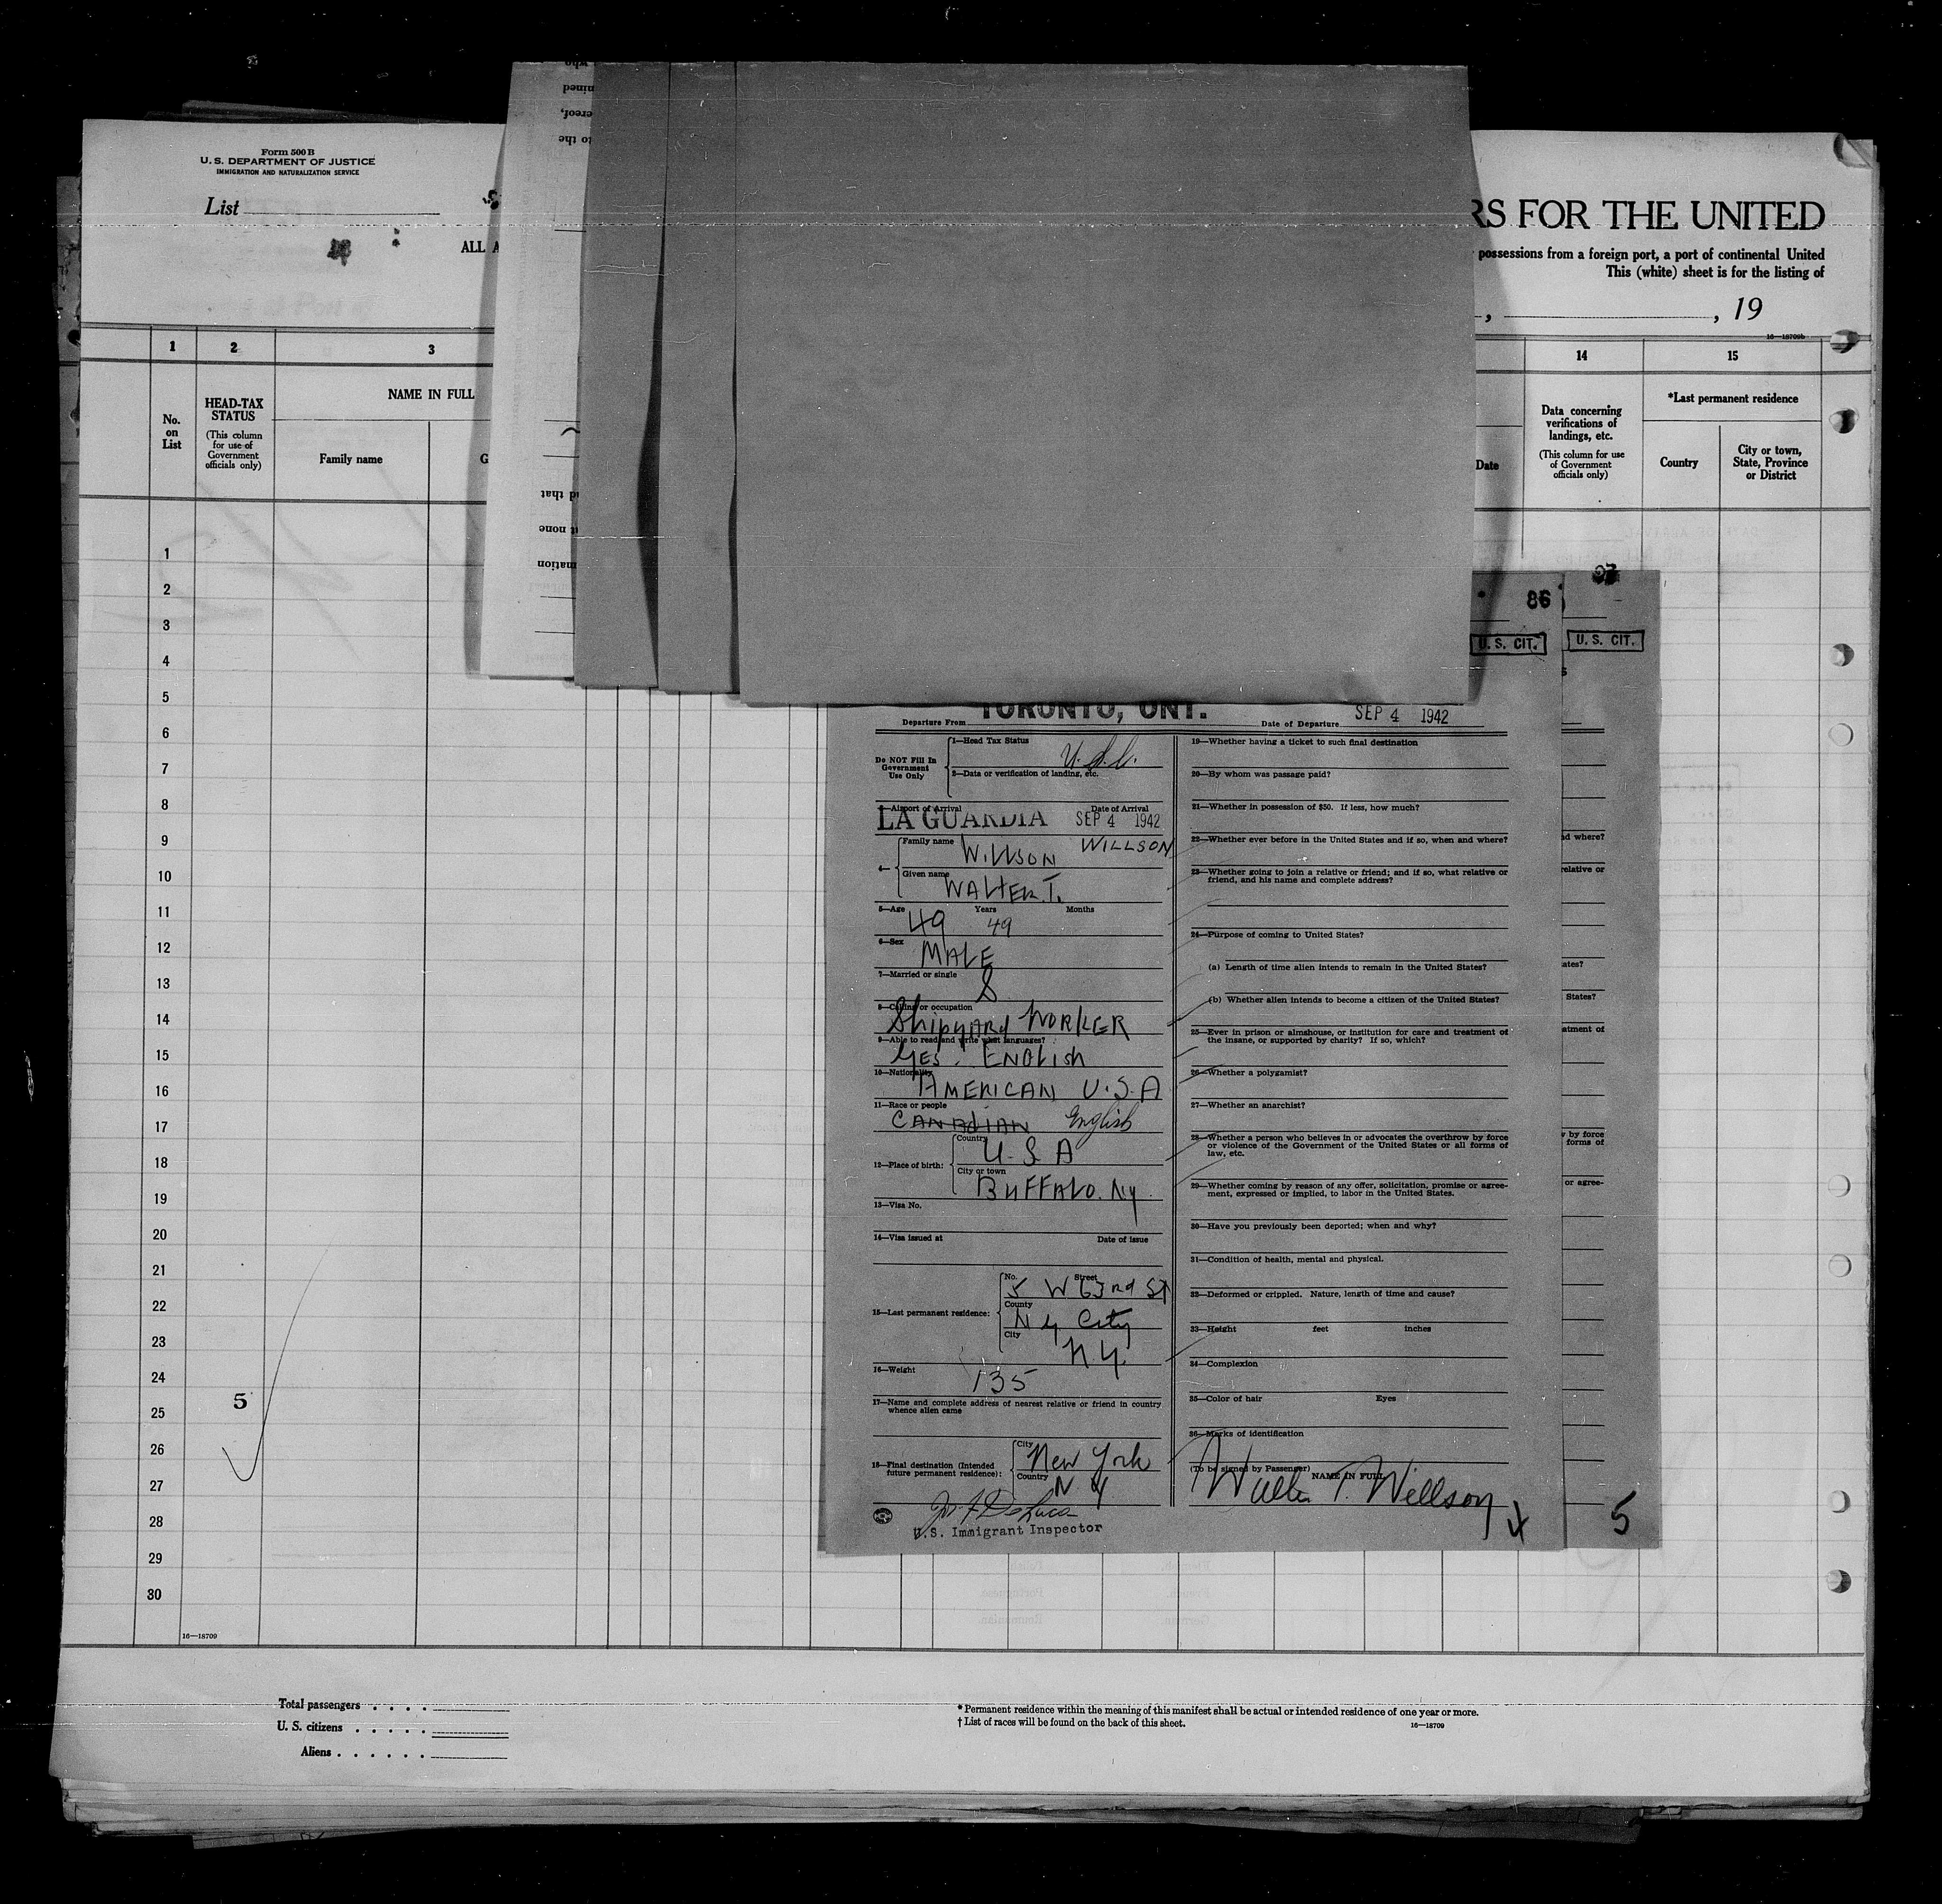 Form 500 B
U. S. DEPARTMENT OF JUSTICE
IMMIGRATION AND NATURALIZATION SERVICE
List
ALL A
RS FOR THE UNITED
possessions from a foreign port, a port of continental United
This (white) sheet is for the listing of
, , 19
16—18709b
1 2 3 14 15
No. on List
HEAD-TAX STATUS
(This column for use of Government officials only)
NAME IN FULL
Family name
G
Date
Data concerning verifications of landings, etc.
(This column for use of Government officials only)
*Last permanent residence
Country
City or town, State, Province or District
who
ereof,
to the
d that
t none
mation
86
U. S. CIT.
U. S. CIT.
1
2
3
4
5
6
7
8
9
10
11
12
13
14
15
16
17
18
19
20
21
22
23
24
25
26
27
28
29
30
5
16—18709
TORONTO, ONT.
Departure From
Date of Departure SEP 4 1942
Do NOT Fill In Government Use Only
1—Head Tax Status U.S.C.
2—Data or verification of landing, etc.
3—Airport of Arrival LA GUARDIA
Date of Arrival SEP 4 1942
4—
Family name WILLSON WILLSON
Given name WALTER T.
5—Age 49 Years 49 Months
6—Sex MALE
7—Married or single S
8—Calling or occupation Shipyard WORKER
9—Able to read and write what languages? YES. ENGLISH
10—Nationality AMERICAN U.S.A
11—Race or people CANADIAN English
12—Place of birth:
Country U.S.A
City or town BUFFALO. NY.
13—Visa No.
14—Visa issued at Date of issue
15—Last permanent residence:
No. Street 5 W 63rd St
County N Y City
City N.Y.
16—Weight 135
17—Name and complete address of nearest relative or friend in country
whence alien came
18—Final destination (Intended
future permanent residence):
City New York
Country N Y
U.S. Immigrant Inspector
19—Whether having a ticket to such final destination
20—By whom was passage paid?
21—Whether in possession of $50. If less, how much?
22—Whether ever before in the United States and if so, when and where?
23—Whether going to join a relative or friend; and if so, what relative or
friend, and his name and complete address?
24—Purpose of coming to United States?
(a) Length of time alien intends to remain in the United States?
(b) Whether alien intends to become a citizen of the United States?
25—Ever in prison or almshouse, or institution for care and treatment of
the insane, or supported by charity? If so, which?
26—Whether a polygamist?
27—Whether an anarchist?
28—Whether a person who believes in or advocates the overthrow by force
or violence of the Government of the United States or all forms of
law, etc.
29—Whether coming by reason of any offer, solicitation, promise or agree-
ment, expressed or implied, to labor in the United States.
30—Have you previously been deported; when and why?
31—Condition of health, mental and physical.
32—Deformed or crippled. Nature, length of time and cause?
33—Height feet inches
34—Complexion
35—Color of hair Eyes
36—Marks of identification
(To be signed by Passenger) NAME IN FULL
Walter T. Willson
d where?
relative or
ates?
States?
atment of
w by force
forms of
or agree-
5
Total passengers
U. S. citizens
Aliens
* Permanent residence within the meaning of this manifest shall be actual or intended residence of one year or more.
† List of races will be found on the back of this sheet.
16—18709